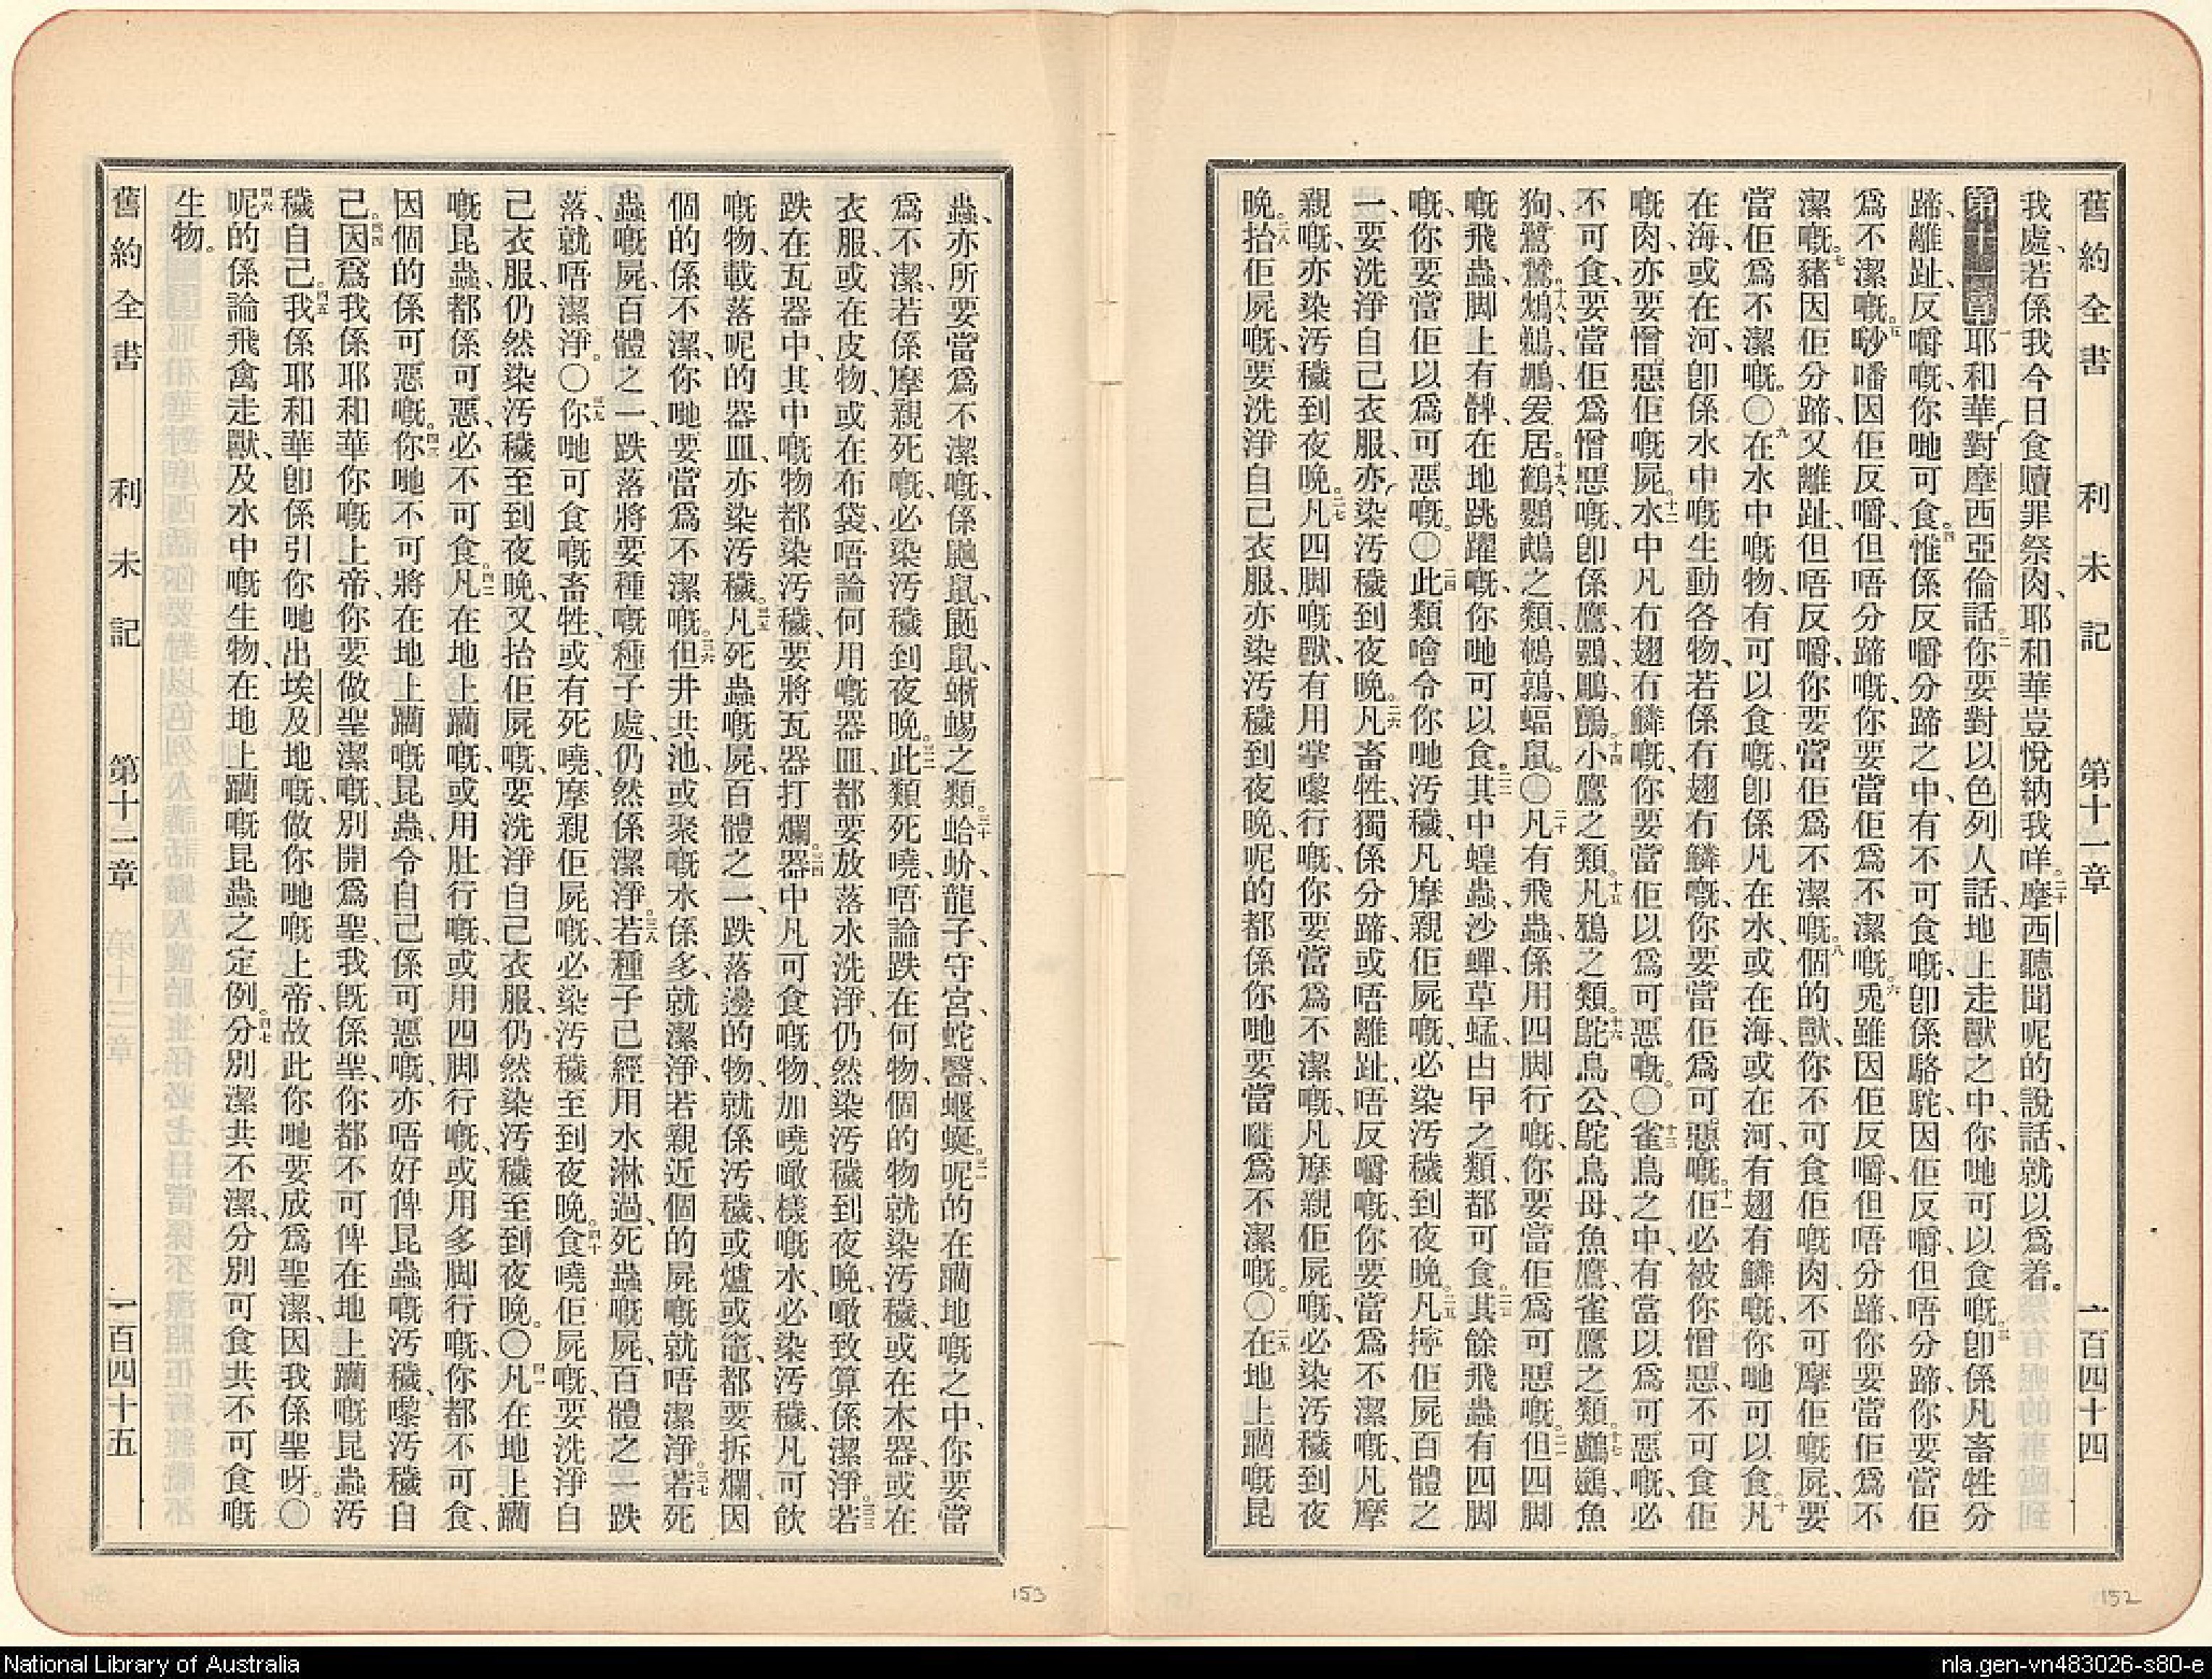 舊約全書 利未記 第十一章 一百四十四
我處、若係我今日食贖罪祭肉、耶和華豈悅納我咩。二十摩西聽聞呢的說話、就以爲着。
第十一章 一耶和華對摩西亞倫話。二你要對以色列人話、地上走獸之中、你哋可以食嘅。三卽係凡畜牲分
蹄、離趾、反嚼嘅、你哋可食。四惟係反嚼分蹄之中、有不可食嘅、卽係駱駝因佢反嚼、但唔分蹄、你要當佢
爲不潔嘅。五𠵇噃因佢反嚼、但唔分蹄嘅、你要當佢爲不潔嘅。六兎雖因佢反嚼、但唔分蹄、你要當佢爲不
潔嘅。七豬因佢分蹄、又離趾、但唔反嚼、你要當佢爲不潔嘅。八個的獸、你不可食佢嘅肉、不可摩佢嘅屍、要
當佢爲不潔嘅。〇九在水中嘅物、有可以食嘅、卽係凡在水、或在海、或在河、有翅有鱗嘅、你哋可以食。十凡
在海、或在河、卽係水中嘅生動各物、若係冇翅冇鱗嘅、你要當佢爲可惡嘅。十一佢必被你憎惡、不可食佢
嘅肉、亦要憎惡佢嘅屍。十二水中凡冇翅冇鱗嘅、你要當佢以爲可惡嘅。〇十三雀鳥之中、有當以爲可惡嘅、必
不可食、要當佢爲憎惡嘅、卽係鷹、鶚、鵰、鸇、十四小鷹之類。十五凡鴉之類。十六鴕鳥公、鴕鳥母、魚鷹、雀鷹之類。十七鸕鷀、魚
狗、鷺鷥、十八鴆、鵜鶘、爰居。十九鶴、鸚鵡之類、鵪鶉、蝙鼠。〇二十凡有飛蟲、係用四脚行嘅、你要當佢爲可惡嘅。二一但四脚
嘅飛蟲、脚上有髀、在地跳躍嘅、你哋可以食。二二其中蝗蟲、沙蟬、草蜢、甴甲之類、都可食。二三其餘飛蟲、有四脚
嘅、你要當佢以爲可惡嘅。〇二四此類噲令你哋汚穢、凡摩親佢屍嘅、必染汚穢到夜晚。二五凡擰佢屍百體之
一、要洗淨自己衣服、亦染汚穢到夜晚。二六凡畜牲、獨係分蹄、或唔離趾、唔反嚼嘅、你要當爲不潔嘅、凡摩
親嘅、亦染汚穢到夜晚。二七凡四脚嘅獸、有用掌嚟行嘅、你要當爲不潔嘅、凡摩親佢屍嘅、必染汚穢到夜
晚。二八抬佢屍嘅、要洗淨自己衣服、亦染汚穢到夜晚、呢的都係你哋要當嘥爲不潔嘅。〇二九在地上躝嘅昆
152
蟲、亦所要當爲不潔嘅、係鼬鼠、鼫鼠、蜥蜴之類。三十蛤蚧、龍子、守宮、蛇醫、蝘蜓。三一呢的在躝地嘅之中、你要當
爲不潔、若係摩親死嘅、必染汚穢到夜晚。三二此類死嘵、唔論跌在何物、個的物就染汚穢、或在木器、或在
衣服、或在皮物、或在布袋、唔論何用嘅器皿、都要放落水洗淨、仍然染汚穢到夜晚、噉致算係潔淨。三三若
跌在瓦器中、其中嘅物都染汚穢、要將瓦器打爛。三四器中凡可食嘅物、加嘵噉樣嘅水、必染汚穢、凡可飲
嘅物、載落呢的器皿、亦染汚穢。三五凡死蟲嘅屍、百體之一、跌落邊的物、就係汚穢、或爐或竈、都要拆爛、因
個的係不潔、你哋要當爲不潔嘅。三六但井共池、或聚嘅水係多、就潔淨、若親近個的屍嘅、就唔潔淨。三七若死
蟲嘅屍、百體之一、跌落將要種嘅種子處、仍然係潔淨。三八若種子已經用水淋過、死蟲嘅屍、百體之一跌
落、就唔潔淨。〇三九你哋可食嘅畜牲、或有死嘵、摩親佢屍嘅、必染汚穢至到夜晚。四十食嘵佢屍嘅、要洗淨自
己衣服、仍然染汚穢至到夜晚、又抬佢屍嘅、要洗淨自己衣服、仍然染汚穢至到夜晚。〇四一凡在地上躝
嘅昆蟲、都係可惡、必不可食。四二凡在地上躝嘅、或用肚行嘅、或用四脚行嘅、或用多脚行嘅、你都不可食、
因個的係可惡嘅。四三你哋不可將在地上躝嘅昆蟲、令自己係可惡嘅、亦唔好俾昆蟲嘅汚穢、嚟汚穢自
己。四四因爲我係耶和華你嘅上帝、你要做聖潔嘅、別開爲聖、我旣係聖、你都不可俾在地上躝嘅昆蟲汚
穢自己。四五我係耶和華卽係引你哋出埃及地嘅、做你哋嘅上帝、故此你哋要成爲聖潔、因我係聖呀。〇
四六呢的係論飛禽走獸、及水中嘅生物、在地上躝嘅昆蟲之定例。四七分別潔共不潔、分別可食共不可食嘅
生物。
舊約全書 利未記 第十一章 一百四十五
153
National Library of Australia
nla.gen-vn483026-s80-e